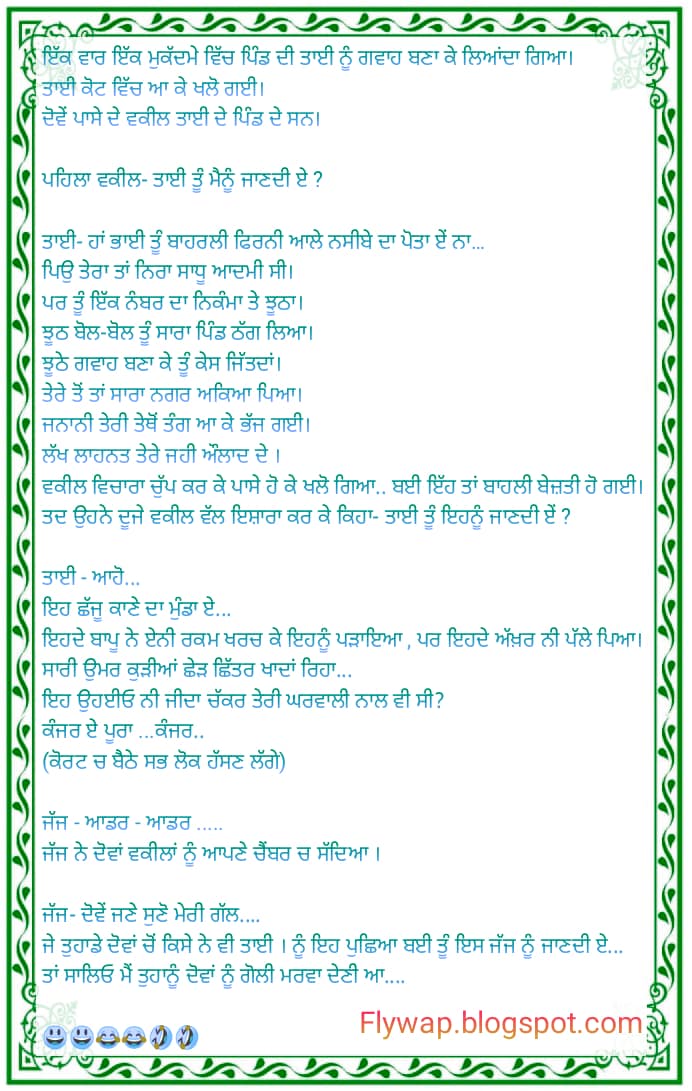 ਇੱਕ ਵਾਰ ਇੱਕ ਮੁਕੱਦਮੇ ਵਿੱਚ ਪਿੰਡ ਦੀ ਤਾਈ ਨੂੰ ਗਵਾਹ ਬਣਾ ਕੇ ਲਿਆਂਦਾ ਗਿਆ।
ਤਾਈ ਕੋਟ ਵਿੱਚ ਆ ਕੇ ਖਲੋ ਗਈ।
ਦੋਵੇਂ ਪਾਸੇ ਦੇ ਵਕੀਲ ਤਾਈ ਦੇ ਪਿੰਡ ਦੇ ਸਨ।
ਪਹਿਲਾ ਵਕੀਲ- ਤਾਈ ਤੂੰ ਮੈਨੂੰ ਜਾਣਦੀ ਏ ?
ਤਾਈ- ਹਾਂ ਭਾਈ ਤੂੰ ਬਾਹਰਲੀ ਫਿਰਨੀ ਆਲੇ ਨਸੀਬੇ ਦਾ ਪੋਤਾ ਏਂ ਨਾ...
ਪਿਉ ਤੇਰਾ ਤਾਂ ਨਿਰਾ ਸਾਧੂ ਆਦਮੀ ਸੀ।
ਪਰ ਤੂੰ ਇੱਕ ਨੰਬਰ ਦਾ ਨਿਕੰਮਾ ਤੇ ਝੂਠਾ।
ਝੂਠ ਬੋਲ-ਬੋਲ ਤੂੰ ਸਾਰਾ ਪਿੰਡ ਠੱਗ ਲਿਆ।
ਝੂਠੇ ਗਵਾਹ ਬਣਾ ਕੇ ਤੂੰ ਕੇਸ ਜਿੱਤਦਾਂ।
ਤੇਰੇ ਤੋਂ ਤਾਂ ਸਾਰਾ ਨਗਰ ਅਕਿਆ ਪਿਆ।
ਜਨਾਨੀ ਤੇਰੀ ਤੇਥੋਂ ਤੰਗ ਆ ਕੇ ਭੱਜ ਗਈ।
ਲੱਖ ਲਾਹਨਤ ਤੇਰੇ ਜਹੀ ਔਲਾਦ ਦੇ ।
ਵਕੀਲ ਵਿਚਾਰਾ ਚੁੱਪ ਕਰ ਕੇ ਪਾਸੇ ਹੋ ਕੇ ਖਲੋ ਗਿਆ.. ਬਈ ਇੱਹ ਤਾਂ ਬਾਹਲੀ ਬੇਜ਼ਤੀ ਹੋ ਗਈ।
ਤਦ ਉਹਨੇ ਦੂਜੇ ਵਕੀਲ ਵੱਲ ਇਸ਼ਾਰਾ ਕਰ ਕੇ ਕਿਹਾ- ਤਾਈ ਤੂੰ ਇਹਨੂੰ ਜਾਣਦੀ ਏਂ ?
ਤਾਈ - ਆਹੋ...
ਇਹ ਛੱਜੂ ਕਾਣੇ ਦਾ ਮੁੰਡਾ ਏ...
ਇਹਦੇ ਬਾਪੂ ਨੇ ਏਨੀ ਰਕਮ ਖਰਚ ਕੇ ਇਹਨੂੰ ਪੜਾਇਆ , ਪਰ ਇਹਦੇ ਅੱਖ਼ਰ ਨੀ ਪੱਲੇ ਪਿਆ।
ਸਾਰੀ ਉਮਰ ਕੁੜੀਆਂ ਛੇੜ ਛਿੱਤਰ ਖਾਦਾਂ ਰਿਹਾ...
ਇਹ ਉਹਈਓ ਨੀ ਜੀਦਾ ਚੱਕਰ ਤੇਰੀ ਘਰਵਾਲੀ ਨਾਲ ਵੀ ਸੀ?
ਕੰਜਰ ਏ ਪੂਰਾ ...ਕੰਜਰ..
(ਕੋਰਟ ਚ ਬੈਠੇ ਸਭ ਲੋਕ ਹੱਸਣ ਲੱਗੇ)
ਜੱਜ - ਆਡਰ - ਆਡਰ .....
ਜੱਜ ਨੇ ਦੋਵਾਂ ਵਕੀਲਾਂ ਨੂੰ ਆਪਣੇ ਚੈਂਬਰ ਚ ਸੱਦਿਆ ।
ਜੱਜ- ਦੋਵੇਂ ਜਣੇ ਸੁਣੋ ਮੇਰੀ ਗੱਲ....
ਜੇ ਤੁਹਾਡੇ ਦੋਵਾਂ ਚੋਂ ਕਿਸੇ ਨੇ ਵੀ ਤਾਈ । ਨੂੰ ਇਹ ਪੁਛਿਆ ਬਈ ਤੂੰ ਇਸ ਜੱਜ ਨੂੰ ਜਾਣਦੀ ਏ...
ਤਾਂ ਸਾਲਿਓ ਮੈਂ ਤੁਹਾਨੂੰ ਦੋਵਾਂ ਨੂੰ ਗੋਲੀ ਮਰਵਾ ਦੇਣੀ ਆ....
😃😃😂😂🤣🤣 Flywap.blogspot.com